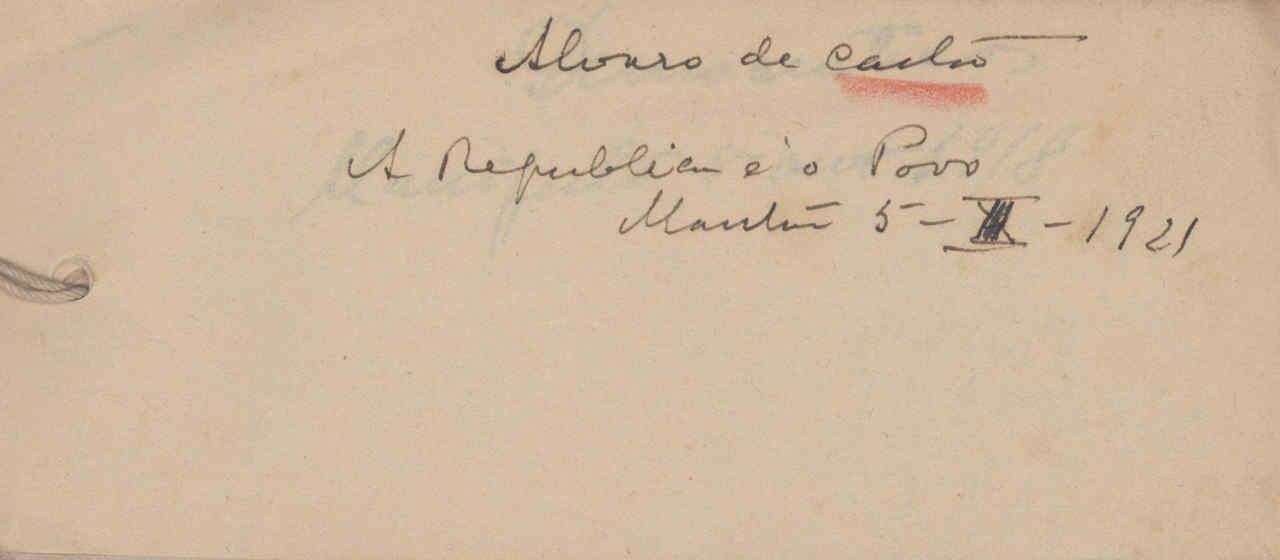 Alvaro de Castro
A Republica é o Povo
Manhã 5-III-1921